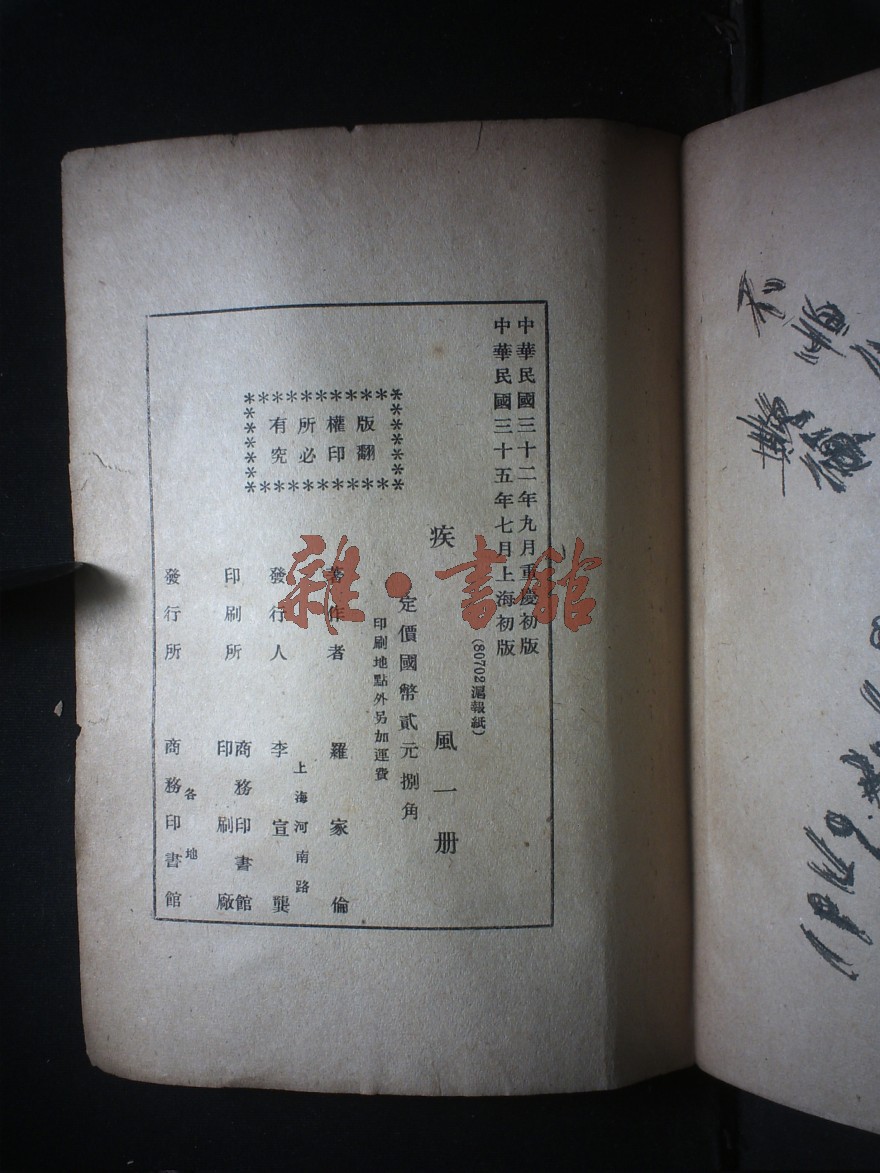 中華民國三十二年九月重慶初版
中華民國三十五年七月上海初版
(80702滬報紙)
疾風一册
定價國幣貳元捌角
印刷地點外另加運費
著作者 羅家倫
上海河南路
發行人 李宣龔
印刷所 商務印書館印刷廠
發行所 各地商務印書館
版權所有
翻印必究
雜·書館